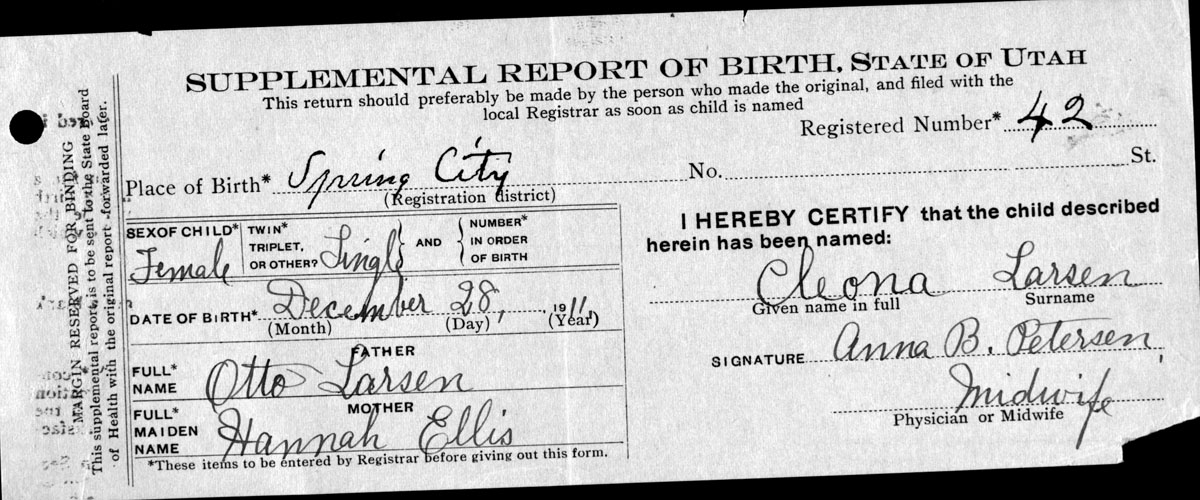 SUPPLEMENTAL REPORT OF BIRTH, STATE OF UTAH
This return should preferably be made by the person who made the original, and filed with the
local Registrar as soon as child is named
Registered Number* 42
Place of Birth* Spring City No. St.
(Registration district)
SEX OF CHILD* Female
TWIN* TRIPLET, OR OTHER? Single
AND
NUMBER* IN ORDER OF BIRTH
DATE OF BIRTH* December 28, 1911
(Month) (Day) (Year)
FATHER
FULL* NAME Otto Larsen
MOTHER
FULL* MAIDEN NAME Hannah Ellis
*These items to be entered by Registrar before giving out this form.
I HEREBY CERTIFY that the child described
herein has been named:
Cleona Larsen
Given name in full Surname
SIGNATURE Anna B. Petersen,
Midwife
Physician or Midwife
MARGIN RESERVED FOR BINDING
This supplemental report is to be sent to the State Board
of Health with the original report forwarded later.